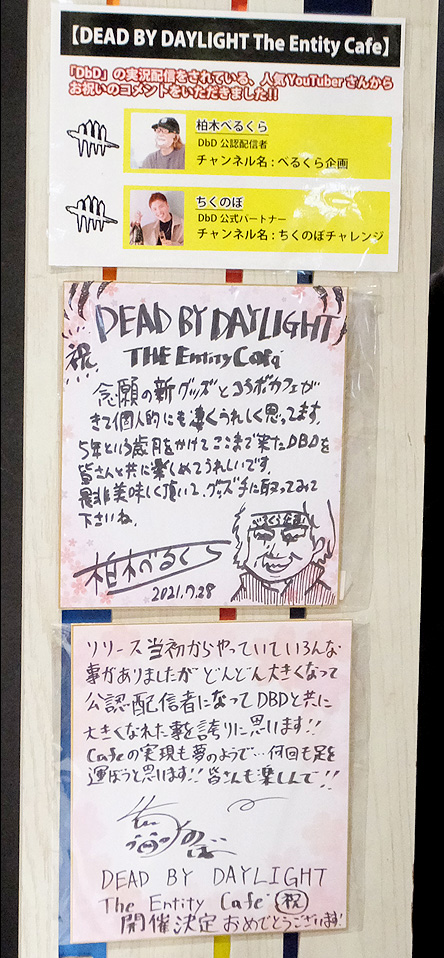 【DEAD BY DAYLIGHT The Entity Cafe】
「DbD」の実況配信をされている、人気YouTuberさんから
お祝いのコメントをいただきました!!
柏木べるくら
DbD 公認配信者
チャンネル名：べるくら企画
ちくのぼ
DbD 公式パートナー
チャンネル名：ちくのぼチャレンジ
DEAD BY DAYLIGHT
祝
THE Entity Cafe
念願の新グッズとコラボカフェが
きて個人的にも凄くうれしく思ってます。
5年という歳月をかけてここまで来たDBDを
皆さんと共に楽しめてうれしいです。
是非美味しく頂いて、グッズ手に取ってみて
下さいね。
べるくら企画
柏木べるくら
2021.7.28
リリース当初からやっていていろんな
事がありましたが どんどん大きくなって
公認配信者になってDBDと共に
大きくなれた事を誇りに思います!!
Cafeの実現も夢のようで…何回も足を
運ぼうと思います!! 皆さんも楽しんで!!
DEAD BY DAYLIGHT
The Entity Cafe 祝
開催決定 おめでとうございます!